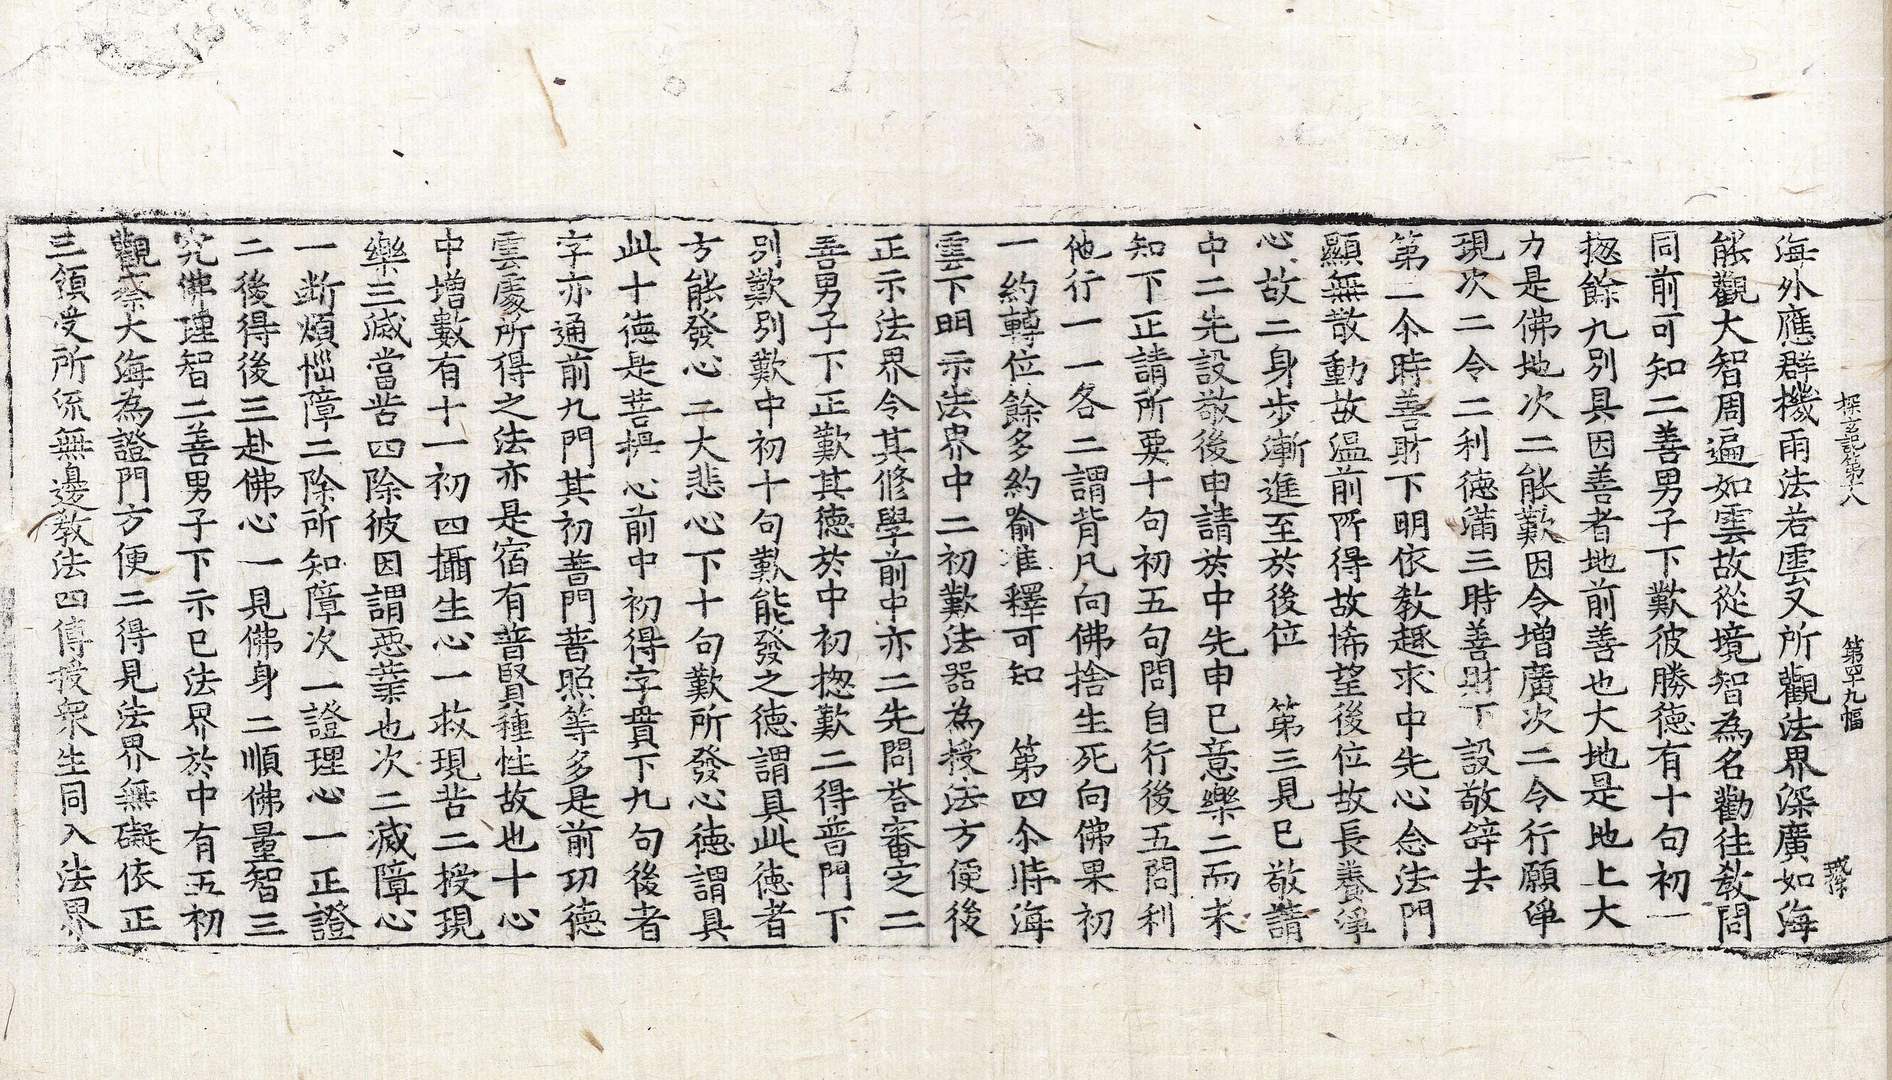 探玄記第十八　第四十九幅
海外應群機雨法若雲又所觀法界深廣如海
能觀大智周遍如雲故從境智為名勸往敎問
同前可知二善男子下歎彼勝徳有十句初一
揔餘九別具因善者地前善也大地是地上大
力是佛地次二能歎因令增廣次二令行願淨
現次二令二利徳滿三時善財下設敬辝去
第二尒時善財下明依敎趣求中先心念法門
顯無散動故溫前所得故悕望後位故長養淨
心故二身步漸進至於後位　第三見已敬請
中二先設敬後申請於中先申已意樂二而未
知下正請所要十句初五句問自行後五問利
他行一一各二謂背凡向佛捨生死向佛果初
一約轉位餘多約喻准釋可知　第四尒時海
雲下明示法界中二初歎法器為授法方便後
正示法界令其修學前中亦二先問荅審定二
善男子下正歎其徳於中初揔歎二得普門下
別歎別歎中初十句歎能發之徳謂具此徳者
方能發心二大悲心下十句歎所發心徳謂具
此十徳是菩提心前中初得字貫下九句後者
字亦通前九門其初普門普照等多是前功徳
雲處所得之法亦是宿有普賢種性故也十心
中增數有十一初四攝生心一救現苦二授現
樂三滅當苦四除彼因謂惡業也次二滅障心
一斷煩惱障二除所知障次一證理心一正證
二後得後三赴佛心一見佛身二順佛量智三
究佛理智二善男子下示已法界於中有五初
觀察大海為證門方便二得見法界無礙依正
三領受所流無邊敎法四傳授衆生同入法界